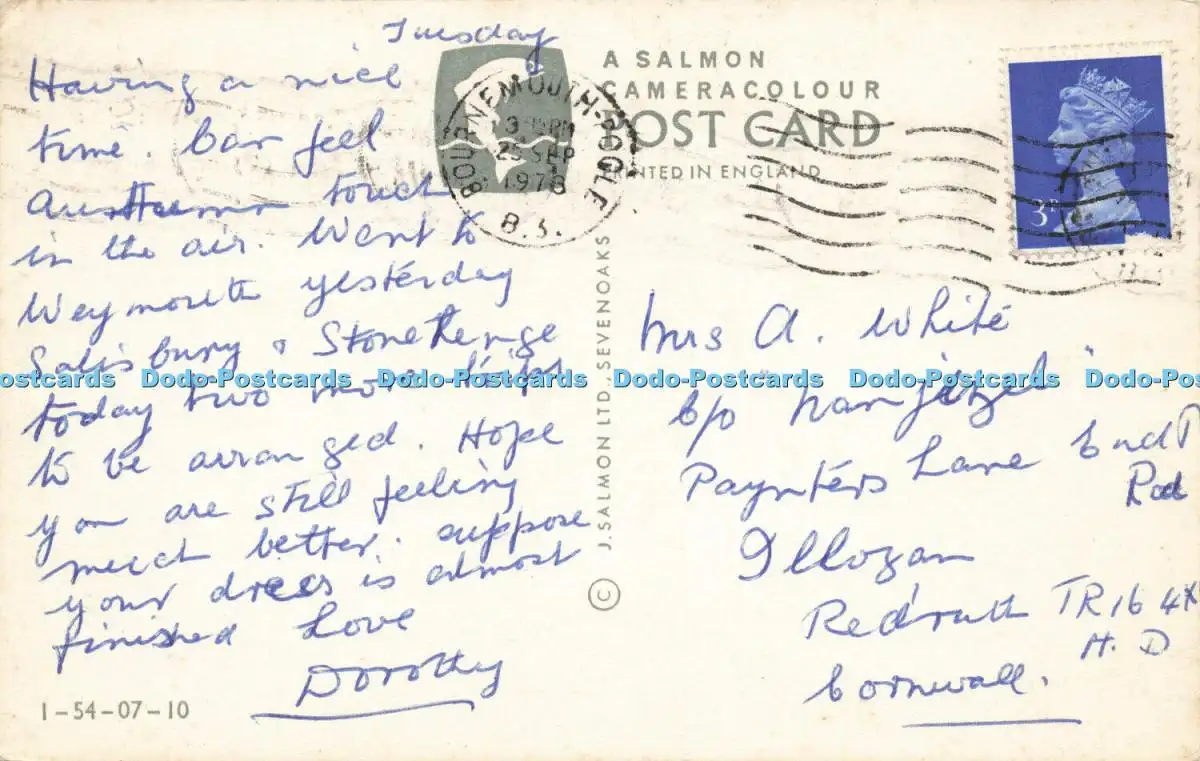 Tuesday
Having a nice
time. Can feel
Austtumn touch
in the air. Went to
Weymouth yesterday
Salisbury & Stonethenge
today two more trips
to be arranged. Hope
you are still feeling
much better. suppose
your dress is almost
finished Love
Dorothy
1-54-07-10
A SALMON
CAMERACOLOUR
POST CARD
PRINTED IN ENGLAND
BOURNEMOUTH-POOLE
SEP
B.
© J. SALMON LTD., SEVENOAKS
3P
Mrs A. White
c/o
Paynters Lane End
Rd
Illogan
Redruth TR16 4
Cornwall.
Dodo-Postcards Dodo-Postcards Dodo-Postcards Dodo-Postcards Dodo-Postcards